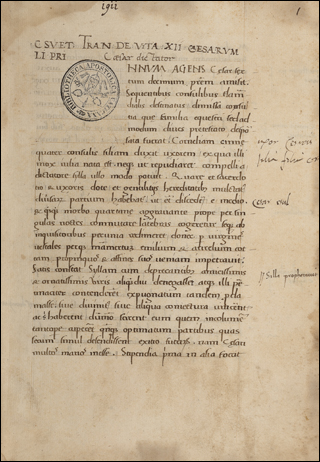 1
C SVET TRAN DE VITA XII CESARVM
LI PRI Caesar dictator
NNVM AGENS Cesar sex
tum decimum patrem amisit
Sequentibus consulibus flamen
dialis destinatus dimissa cossutia
que familia equestri sed ad
modum diues pretextato despon
sata fuerat Corneliam cinne
quater consulis filiam duxit uxorem ex qua illi
mox iulia nata est neque ut repudiaret compelli a
dictatore sylla ullo modo potuit Quare et sacerdo
tio & uxoris dote et gentilitiis hereditatibus mulctatus
diuersarum partium habebatur ut et discedere e medio
& quamquam morbo quartane aggrauante prope per sin
gulas noctes commutare latebras cogeretur seque ab
inquisitoribus pecunia redimeret donec per uirgines
uestales perque mamercum emilium & aurelium cot
tam propinquos & affines suos ueniam impetrauit
Satis constat Syllam cum deprecantibus amicissimis
& ornatissimis uiris aliquamdiu denegasset atque illi per
tinaciter contenderent expugnatum tandem procla
masse siue diuinitus siue aliqua coniectura uincerent
ac sibi haberent dummodo scirent eum quem incolumem
tantopere cuperent quandoque optimatum partibus quas
secum simul defendissent exitio futurum nam Cesari
multos marios inesse Stipendia prima in asia fecit